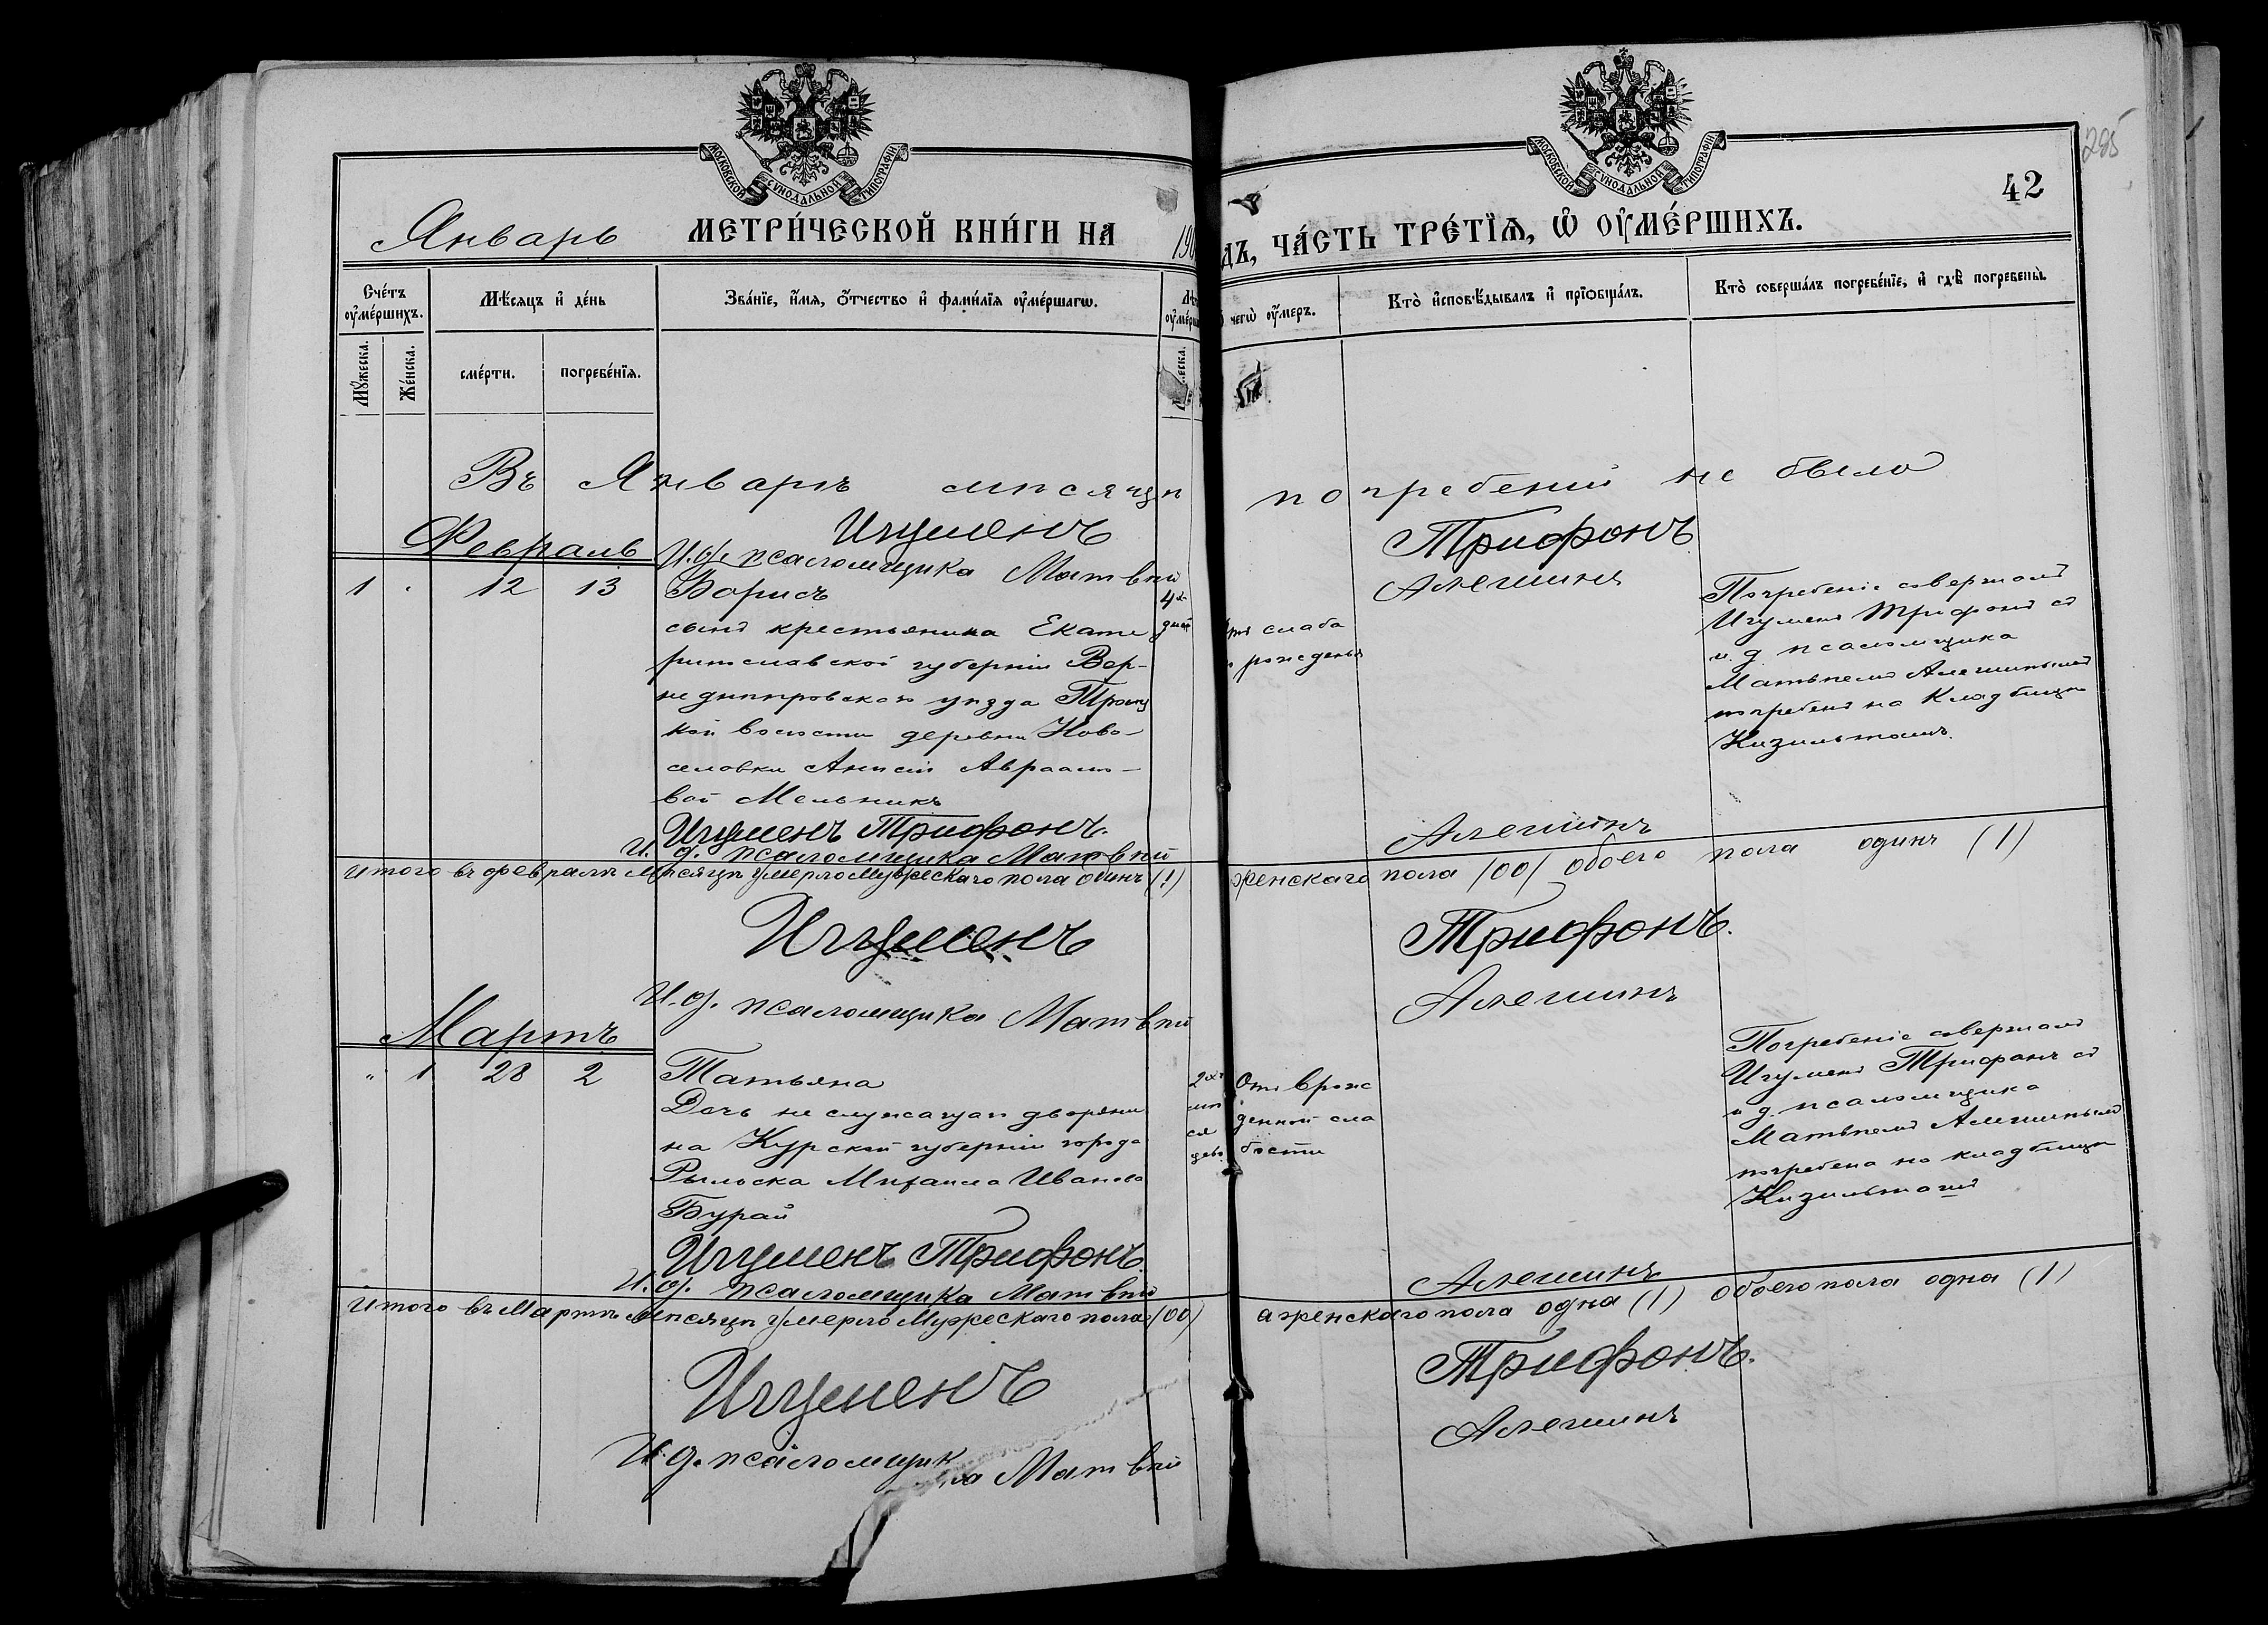 МОСКОВСКОЙ СѴНОДАЛЬНОЙ ТИПОГРАФІИ
МОСКОВСКОЙ СѴНОДАЛЬНОЙ ТИПОГРАФІИ
285
42
Январь МЕТРИ́ЧЕСКОЙ КНИ́ГИ НА 190 ДЪ, ЧА́СТЬ ТРЕ́ТЇѦ, Ѡ҆ ОУ҆МЕ́РШИХЪ.
Сче́тъ оу҆ме́ршихъ.
Мѣ́сяцъ и҆ де́нь
Зва́нїе, и҆́мя, ѻ҆́тчество и҆ фами́лїя оу҆ме́ршагѡ.
чегѡ̀ оу҆́меръ.
Кто̀ и҆сповѣ́дывалъ и҆ прїѡбща́лъ.
Кто̀ соверша́лъ погребе́нїе, и҆ гдѣ̀ погребены̀.
Мꙋ́жеска.
Же́нска.
сме́рти.
погребе́нїя.
Въ Январѣ мѣсяцѣ погребений не было
Игуменъ Трифонъ
И.д. псаломщика Матвѣй Алешинъ
Февраль
1 12 13
Борисъ
сынъ крестьянина Екате
ринославской губерніи Вер-
не днѣпровскаго уѣзда Троиц
кой волости деревни Ново-
селовки Анисіи Авраамо-
вой Мельникъ
4х
дней
слаба
рожденья
Погребеніе совершалъ
Игуменъ Трифонъ съ
и. д. псаломщика
Матвѣемъ Алешинымъ
погребенъ на Кладбищѣ
Кизилъташъ.
Игуменъ Трифонъ.
И. д. псаломщика Матвѣй Алешинъ
Итого въ февралѣ мѣсяцѣ умерло Мужескаго пола одинъ (1) женскаго пола (00) обоего пола одинъ (1)
Игуменъ Трифонъ.
И.д. псаломщика Матвѣй Алешинъ
Мартъ
" 1 28 2
Татьяна
Дочь не служащаго дворяни
на Курской губерніи города
Рыльска Михаила Иванова
Бурай
2хъ
мѣ
ся
цевъ
Отъ врож
денной сла
бости
Погребеніе совершалъ
Игуменъ Трифонъ съ
и д. псаломщика
Матвѣемъ Алешинымъ
погребена на кладбищѣ
Кизилъташъ
Игуменъ Трифонъ.
И. д. псаломщика Матвѣй Алешинъ
Итого въ Мартѣ мѣсяцѣ умерло Мужескаго пола (00) а женскаго пола одна (1) обоего пола одна (1)
Игуменъ Трифонъ.
И.д. псаломщика Матвѣй Алешинъ